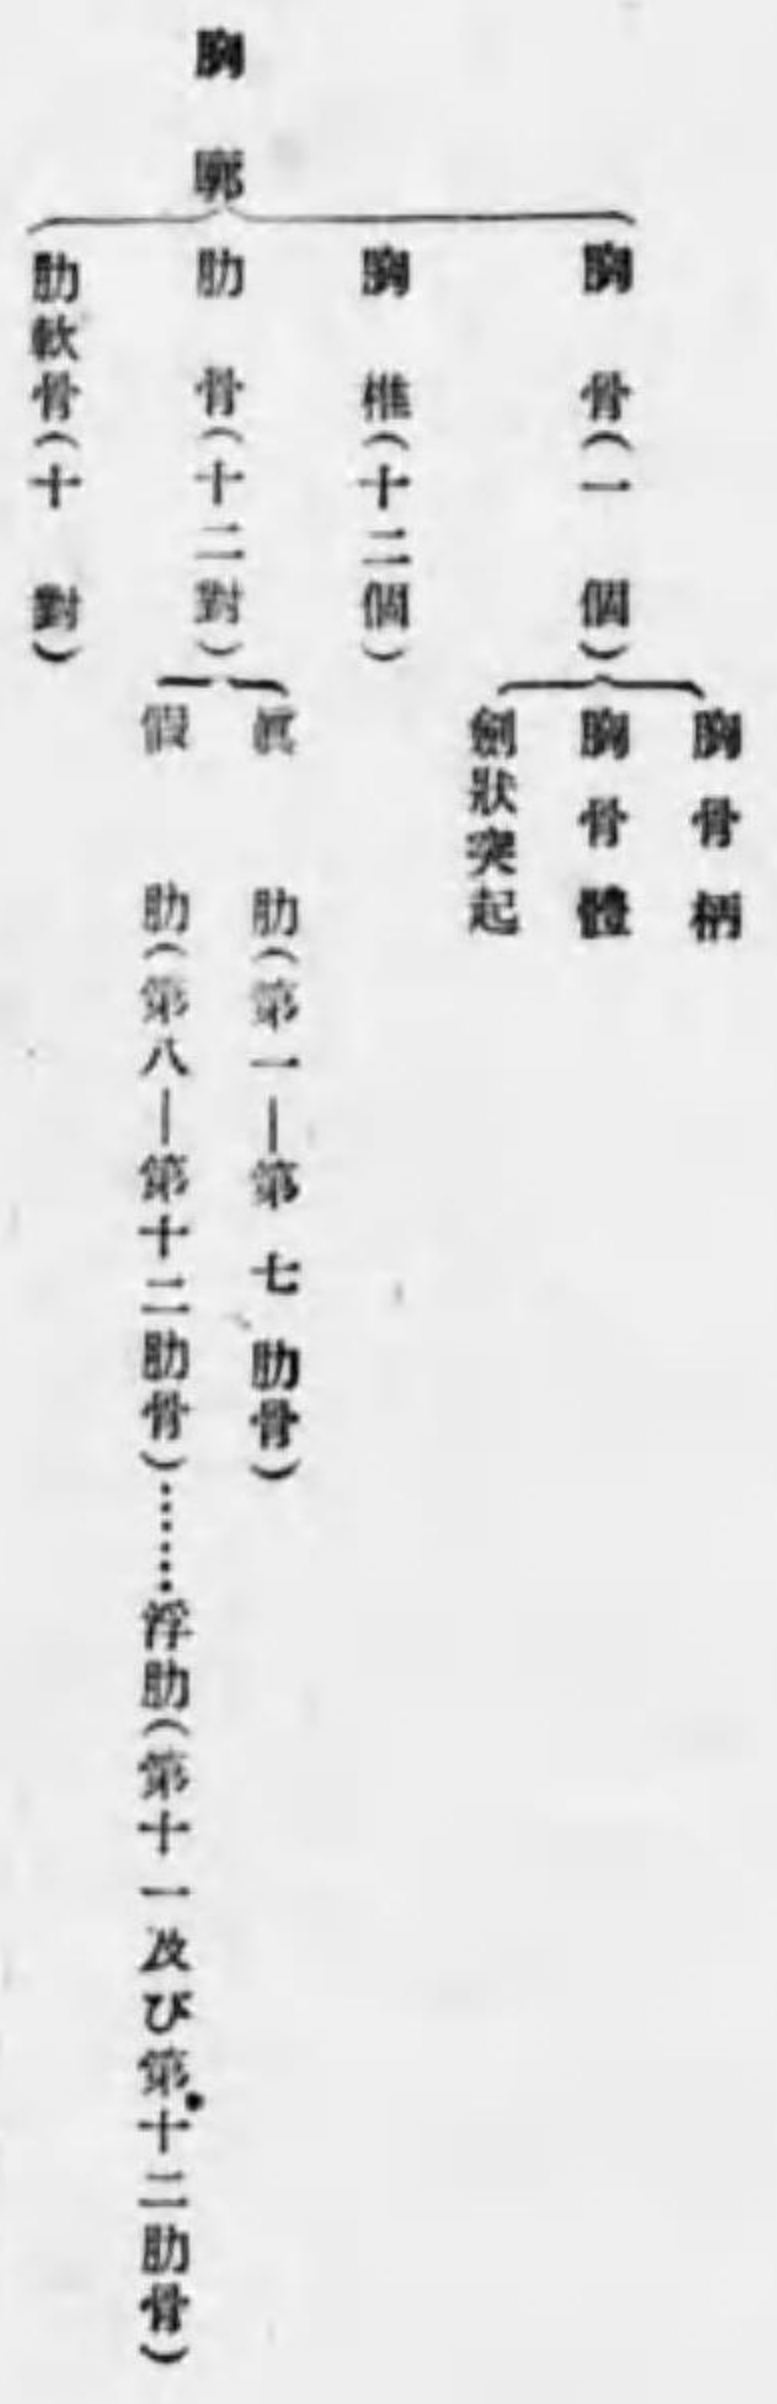 胸廓
胸骨(一個)
胸骨柄
胸骨體
劍狀突起
胸椎(十二個)
肋骨(十二對)
眞肋(第一—第七肋骨)
假肋(第八—第十二肋骨)……浮肋(第十一及び第十二肋骨)
肋軟骨(十對)